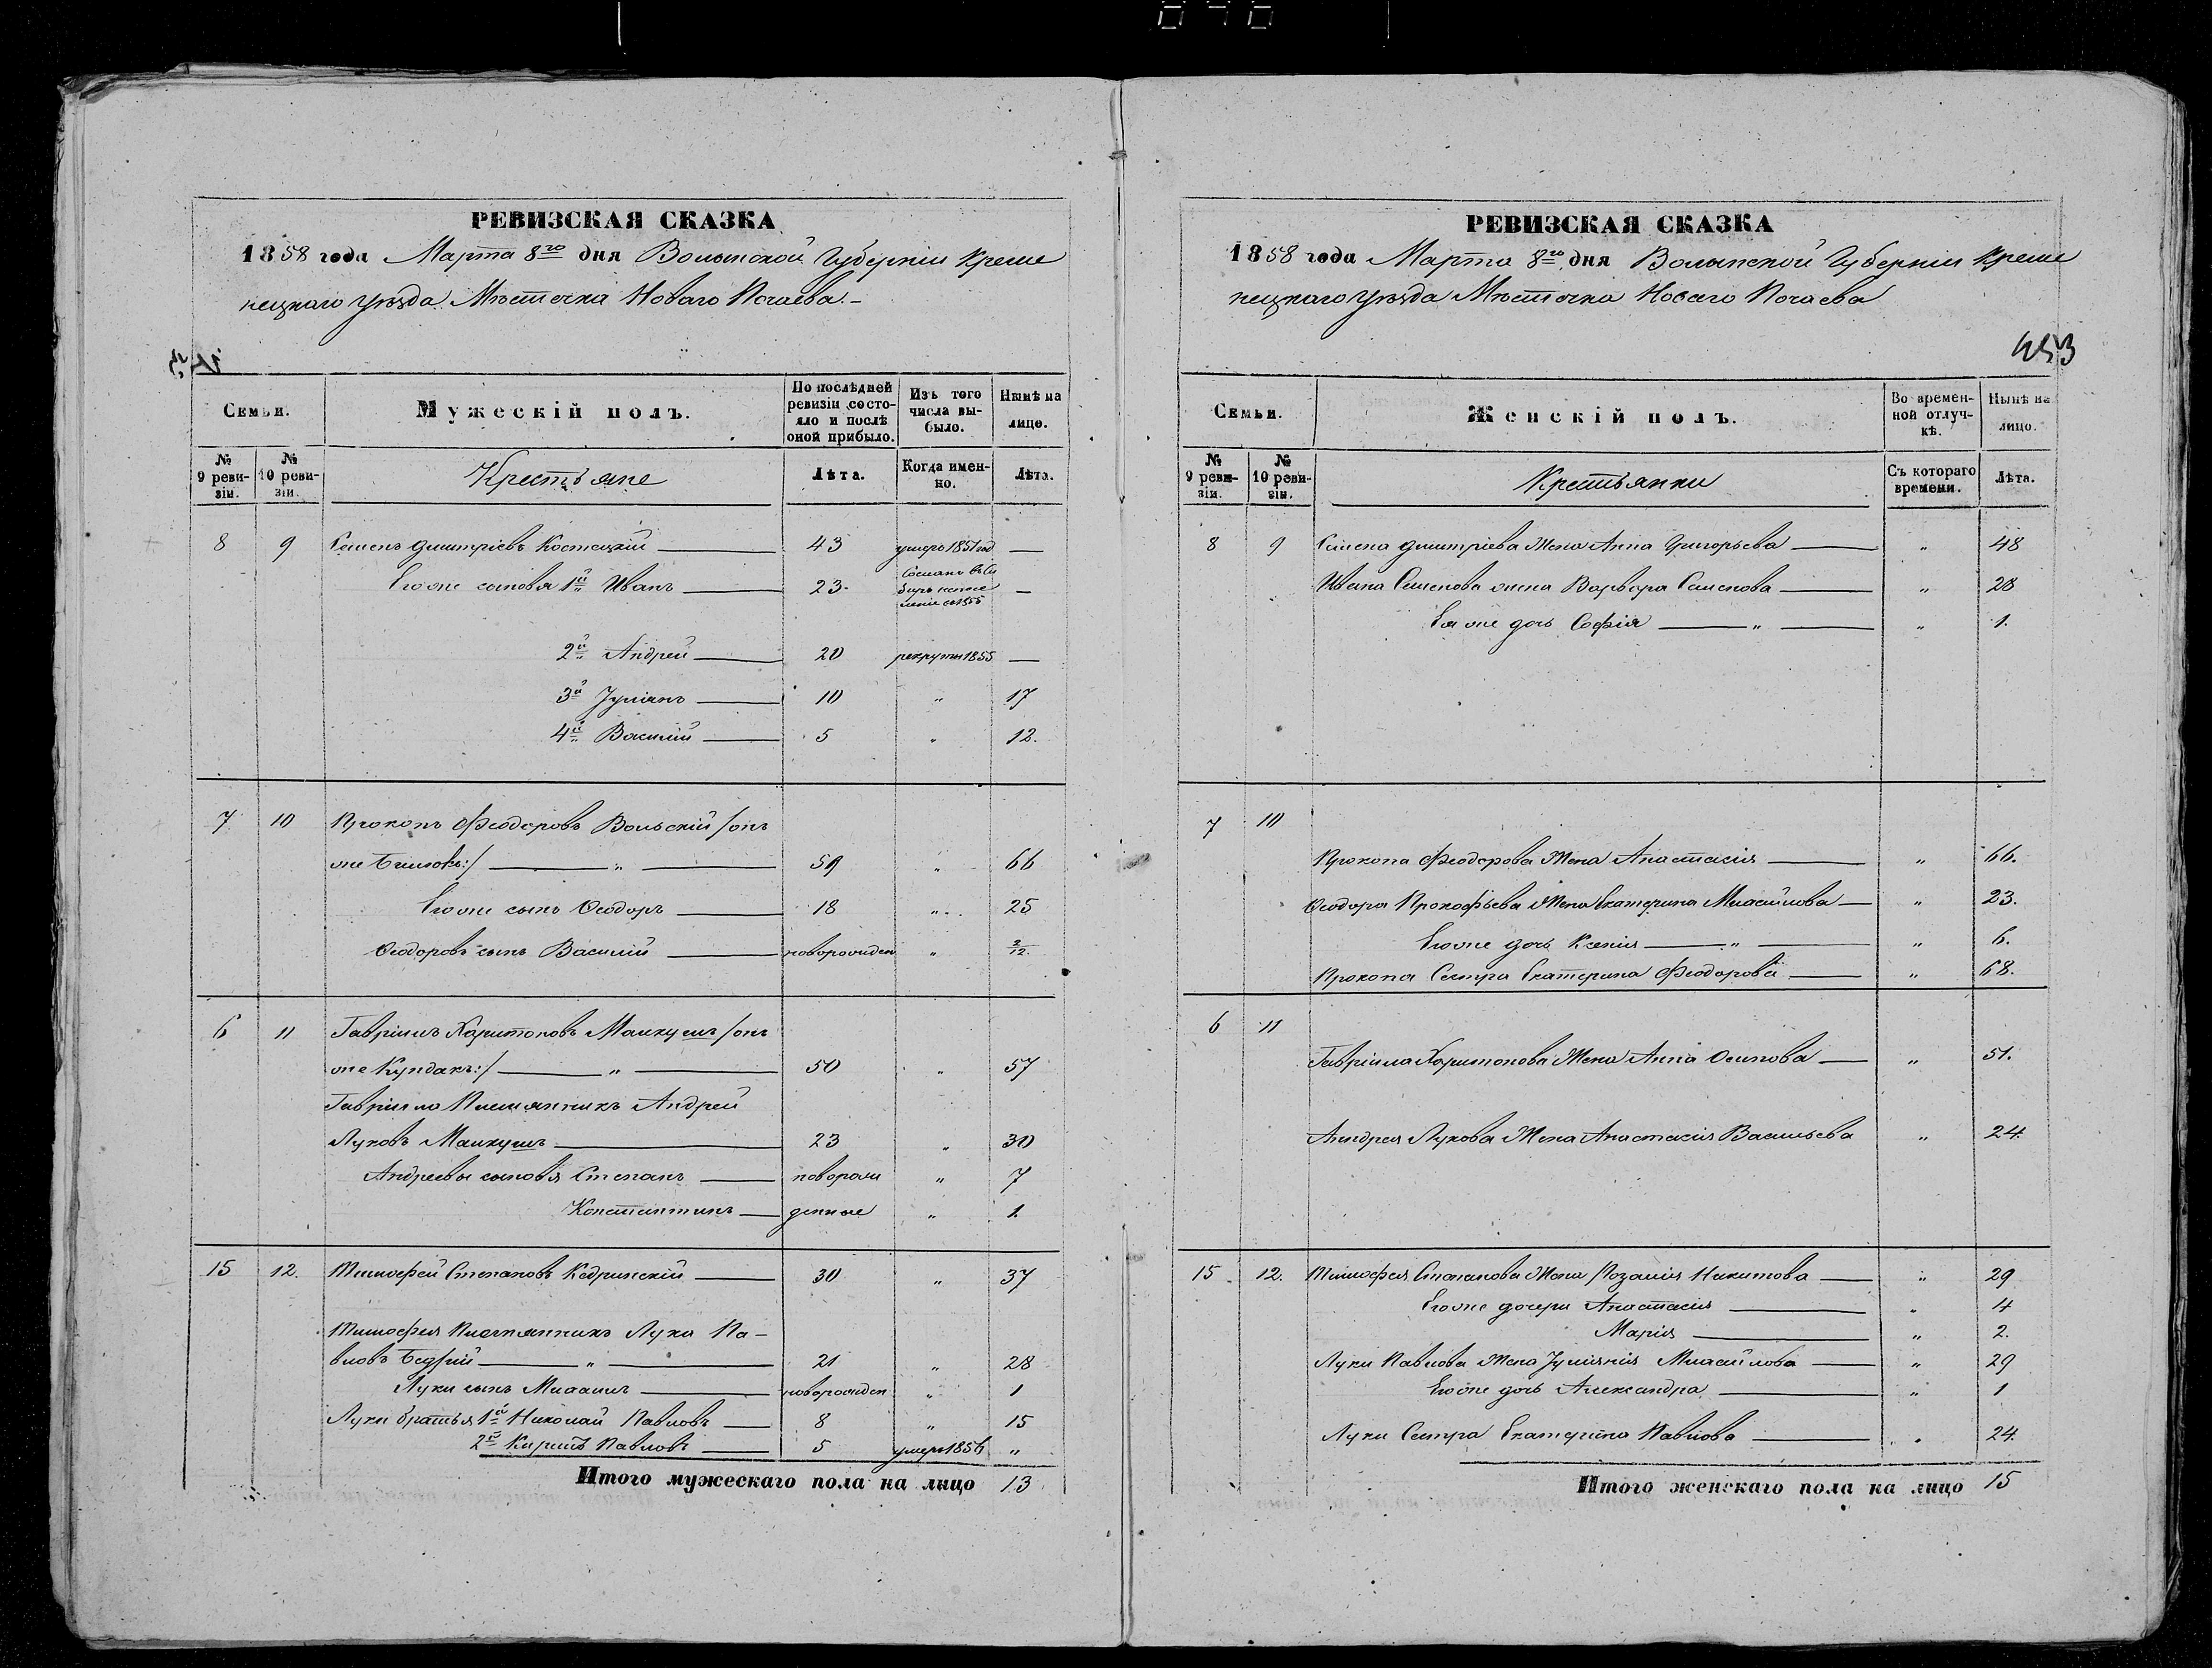 РЕВИЗСКАЯ СКАЗКА
1858 года Марта 8го дня Волынской Губерніи Креме
нецкаго Уѣзда Мѣстечка Новаго Почаева
Семьи.
Мужескій полъ.
По послѣдней ревизіи состояло и послѣ оной прибыло.
Изъ того числа выбыло.
Нынѣ на лицо.
№ 9 ревизіи.
№ 10 ревизіи.
Крестьяне
Лѣта.
Когда именно.
Лѣта.
8 9 Семенъ Дмитріевъ Костецкій 43 умеръ 1851 год —
Егоже сыновья 1й Иванъ 23 Сосланъ въ Си —
2й Андрей 20 рекрутъ 1855 —
3й Іуліанъ 10 " 17
4й Василій 5 " 12.
7 10 Прокопъ Феодоровъ Вольскій /онъ
же :/ " 59 " 66
Егоже сынъ Ѳеодоръ 18 " 25
Ѳеодоровъ сынъ Василій новорожден " 2/12.
6 11 Гавріилъ Харитоновъ Манкушъ /онъ
же Кундакъ:/ " 50 " 57
Гавріила Племянникъ Андрей
Луковъ Манкушъ 23 " 30
Андреевы сыновья Степанъ новорож " 7
Константинъ денные " 1.
15 12. Тимофей Степановъ Кедринскій 30 " 37
Тимофея Племянникъ Лука Па-
вловъ " 21 " 28
Луки сынъ Михаилъ новорожден " 1
Луки братья 1й Николай Павловъ 8 " 15
2й Кирилъ Павловъ 5 умеръ 1856 "
Итого мужескаго пола на лицо 13
РЕВИЗСКАЯ СКАЗКА
1858 года Марта 8го дня Волынской Губерніи Креме
нецкаго Уѣзда Мѣстечка Новаго Почаева
453
Семьи.
Женскій полъ.
Во временной отлучкѣ.
Нынѣ на лицо.
№ 9 ревизіи.
№ 10 ревизіи.
Крестьянки
Съ котораго времени.
Лѣта.
8 9 Семена Дмитріева Жена Анна Григорьева " 48
Ивана Семенова жена Варвара Семенова " 28
Ея же дочь Софія " " 1.
7 10
Прокопа Феодорова Жена Анастасія " 66.
Ѳеодора Прокофьева Жена Екатерина Михайлова " 23.
Егоже дочь Ксенія " " 6.
Прокопа Сестра Екатерина Феодорова " 68.
6 11
Гавріила Харитонова Жена Анна Осипова " 51.
Андрея Лукова Жена Анастасія Васильева " 24.
15 12. Тимофея Степанова Жена Розалія Никитова " 29
Егоже дочери Анастасія " 4
Марія " 2.
Луки Павлова Жена Іуліянія Михайлова " 29
Егоже дочь Александра " 1
Луки Сестра Екатерина Павлова " 24.
Итого женскаго пола на лицо 15